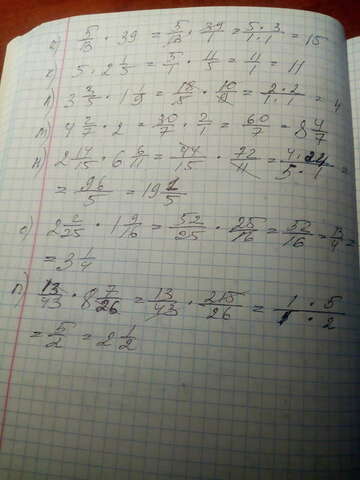 5/13 · 39 = 5/13 · 39/1 = 5·3/1·1 = 15
к) 5 · 2 1/5 = 5/1 · 11/5 = 11/1 = 11
л) 3 3/5 · 1 1/9 = 18/5 · 10/9 = 2·2/1·1 = 4
м) 4 2/7 · 2 = 30/7 · 2/1 = 60/7 = 8 4/7
н) 2 14/15 · 6 6/11 = 44/15 · 72/11 = 4·24/5·1 =
= 96/5 = 19 1/5
о) 2 2/25 · 1 9/16 = 52/25 · 25/16 = 52/16 = 13/4 =
= 3 1/4
п) 13/43 · 8 7/26 = 13/43 · 215/26 = 1·5/1·2
= 5/2 = 2 1/2